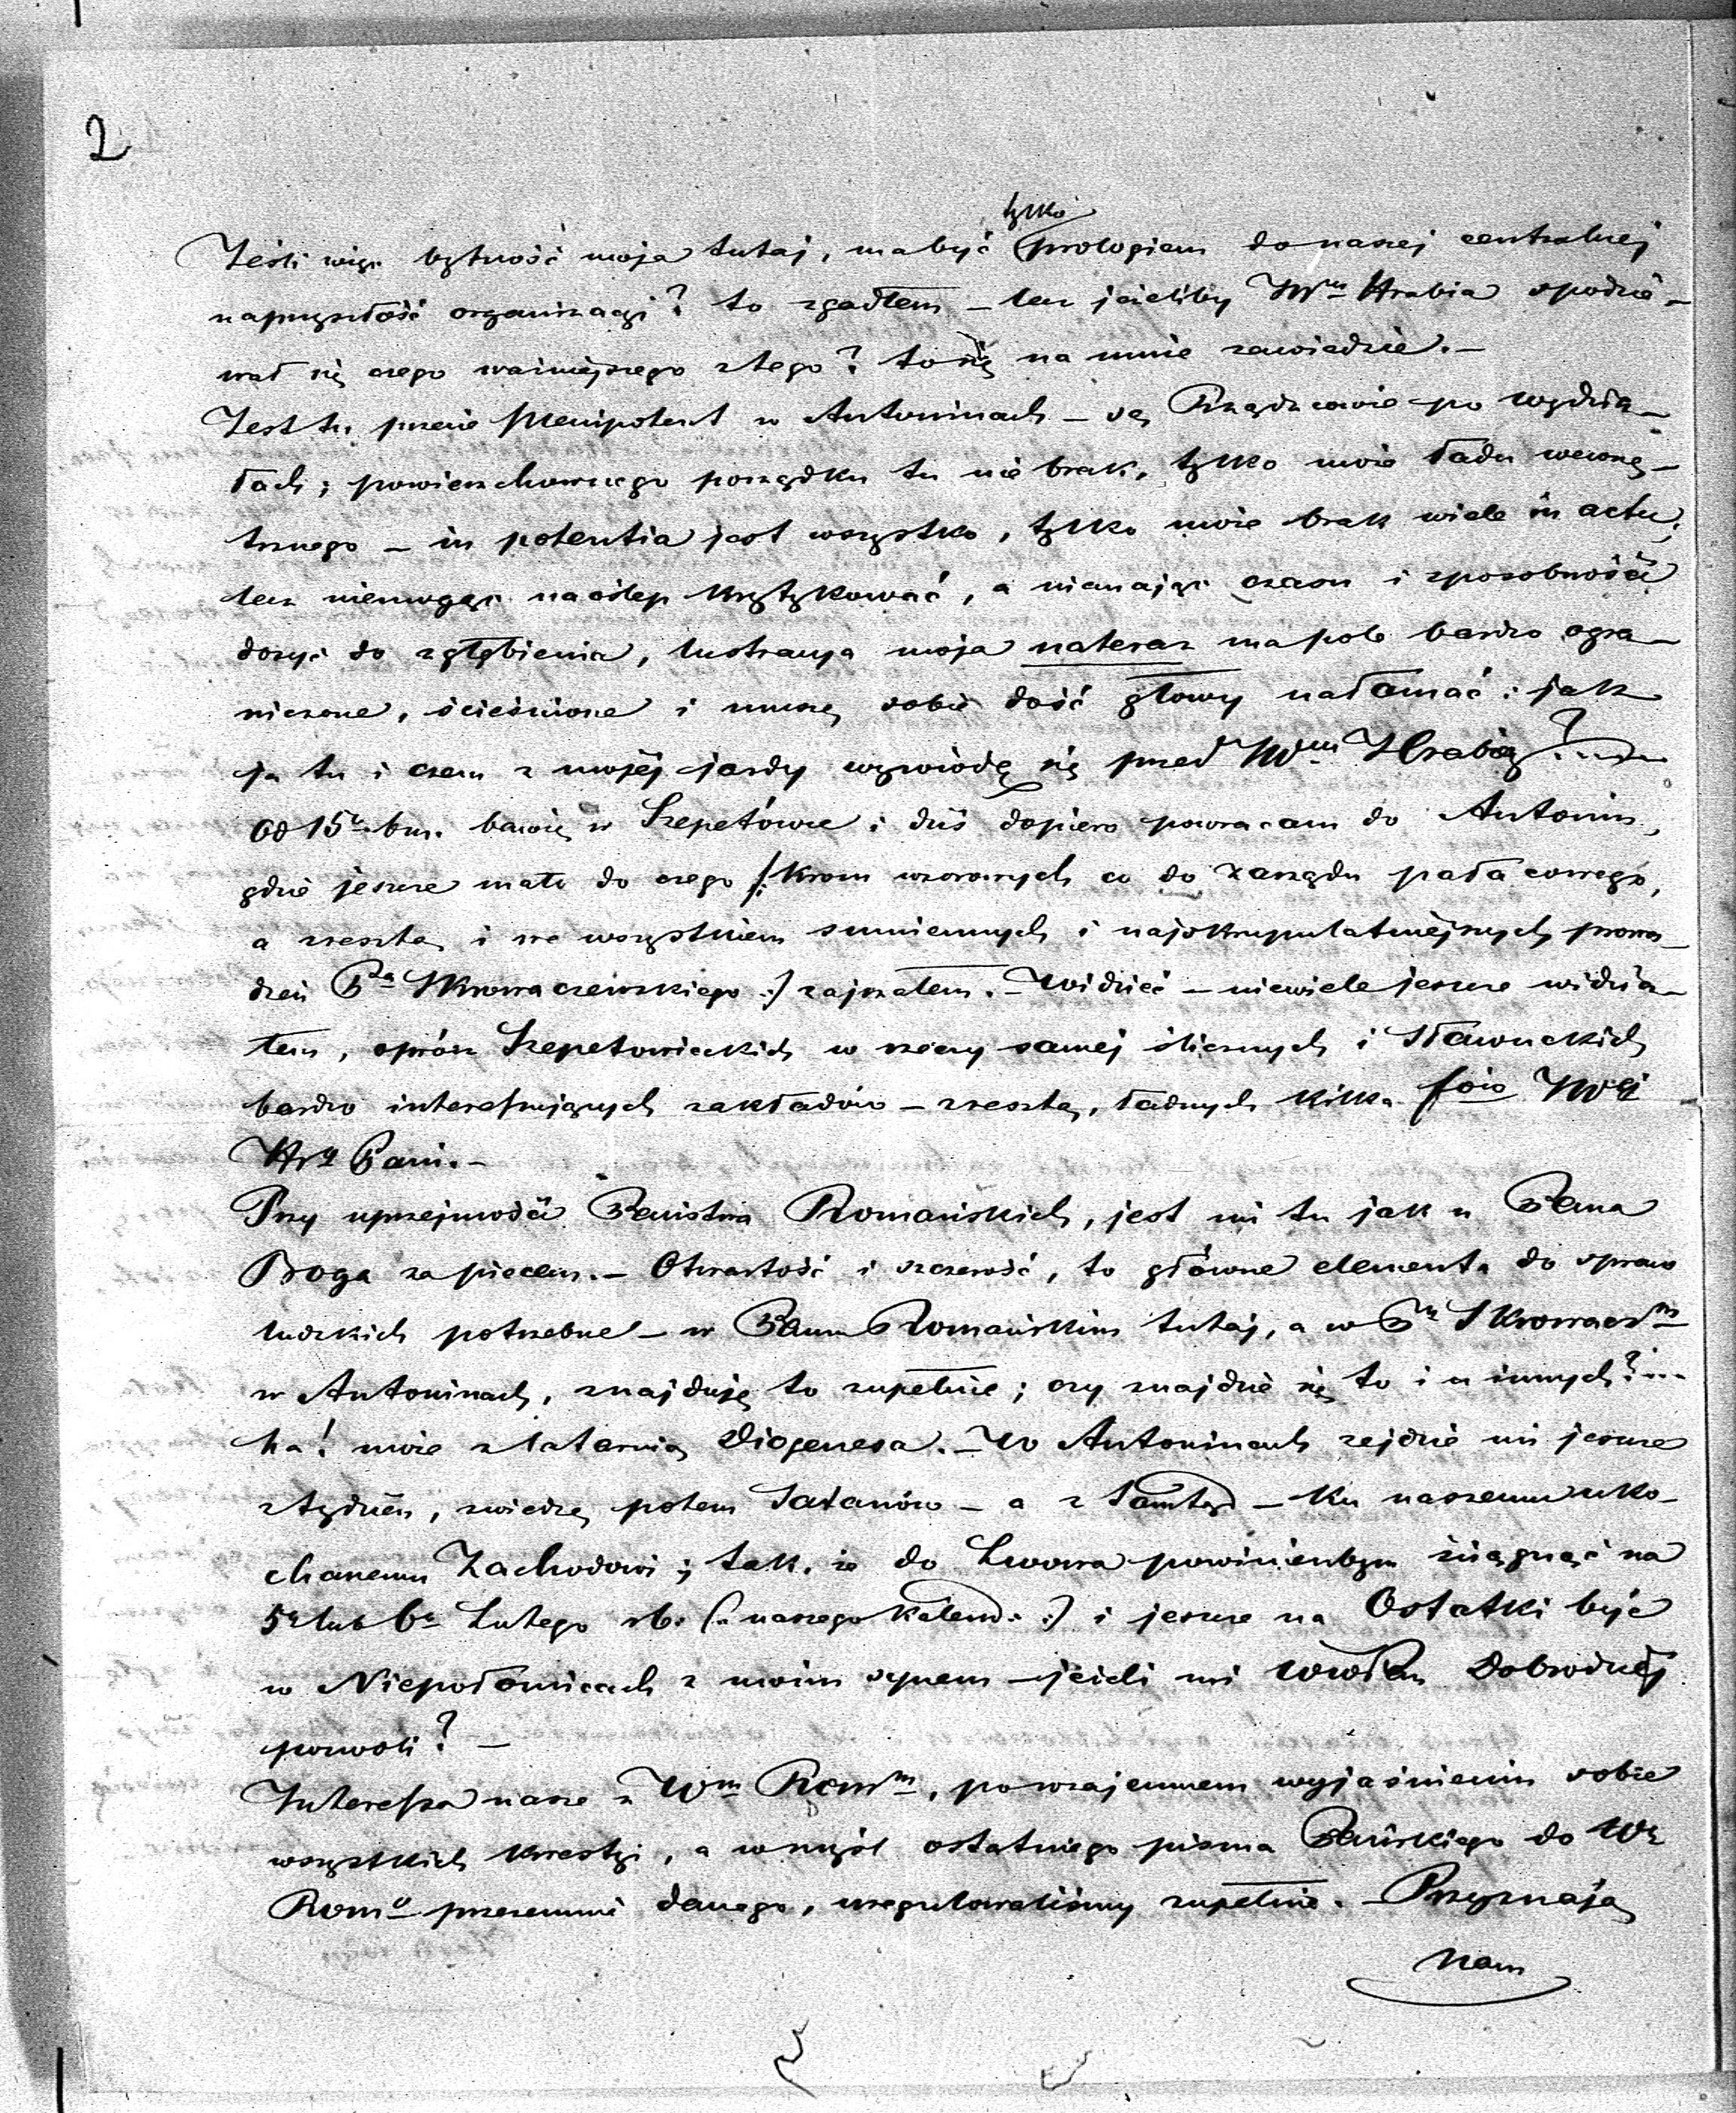 2
tylko
Jeśli więc bytność moja tutaj, ma być prologiem do naszej centralnej
na przyszłość organizacyi? to zgadłem – lecz jeżeliby JWny Hrabia spodzie–
wał się czego ważniejszego z tego? to się na mnie zawiedzie. –
Jest tu przecie Plenipotent w Antoninach – są Rządzcowie po wydzia–
łach; powierzchownego porządku tu nie brak, tylko może ładu wewnę–
trznego – in potentia jest wszystko, tylko może brak wiele in actu;
lecz niemogąc naoślep krytykować, a niemając czasu i sposobności
dosyć do zgłębienia, lustracya moja nateraz ma pole bardzo ogra–
niczone, ścieśnione i muszę sobie dość głowy nałamać: jak
ja tu i czem z mojéj jazdy wywiodę się przed JWm Hrabią?....
Od 15o bm. bawię w Szepetówce i dziś dopiero powracam do Antonin,
gdzie jeszcze mało do czego /: krom wzorowych co do zarządu pałacowego,
a zresztą i we wszystkiem sumiennych i najskrupulatniejszych prowa–
dzeń Pa Skowraczewskiego :/ zajrzałem. – Widzieć – niewiele jeszcze widzia–
łem, oprócz Szepetowieckich w rzeczy samej ślicznych i Sławuckich
bardzo interesujących zakładów – zresztą, ładnych kilka foio JWej
Hry Pani. –
Przy uprzejmości Państwa Romańskich, jest mi tu jak u Pana
Boga za piecem. – Otwartość i szczerość, to główne elementa do spraw
ludzkich potrzebne – w Panu Romańskim tutaj, a w Pu Skowraczm
w Antoninach, znajduję to zupełnie; czy znajdzie się to i u innych?...
ha! może z latarnią Diogenesa. – W Antoninach zejdzie mi jeszcze
z tydzień, zwiedzę potem Satanów – a z tamtąd – ku naszemu uko–
chanemu Zachodowi; tak, że do Lwowa powinienbym ściągnąć na
5o lub 6o Lutego rb. (: naszego kalend. :) i jeszcze na Ostatki być
w Niepołomicach z moim synem – jeżeli mi WWPan Dobrodziej
pozwoli? –
Interessa nasze z Wm Romm, po wzajemnem wyjaśnieniu sobie
wszystkich kwestyi, a w myśl ostatniego pisma Pańskiego do Wo
Romo przezemnie danego, uregulowaliśmy zupełnie. – Przyznają
nam